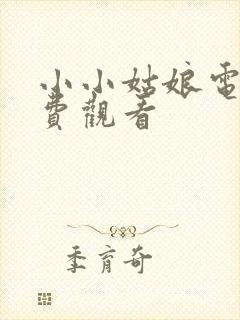 小小姑娘電
費觀看
季育奇